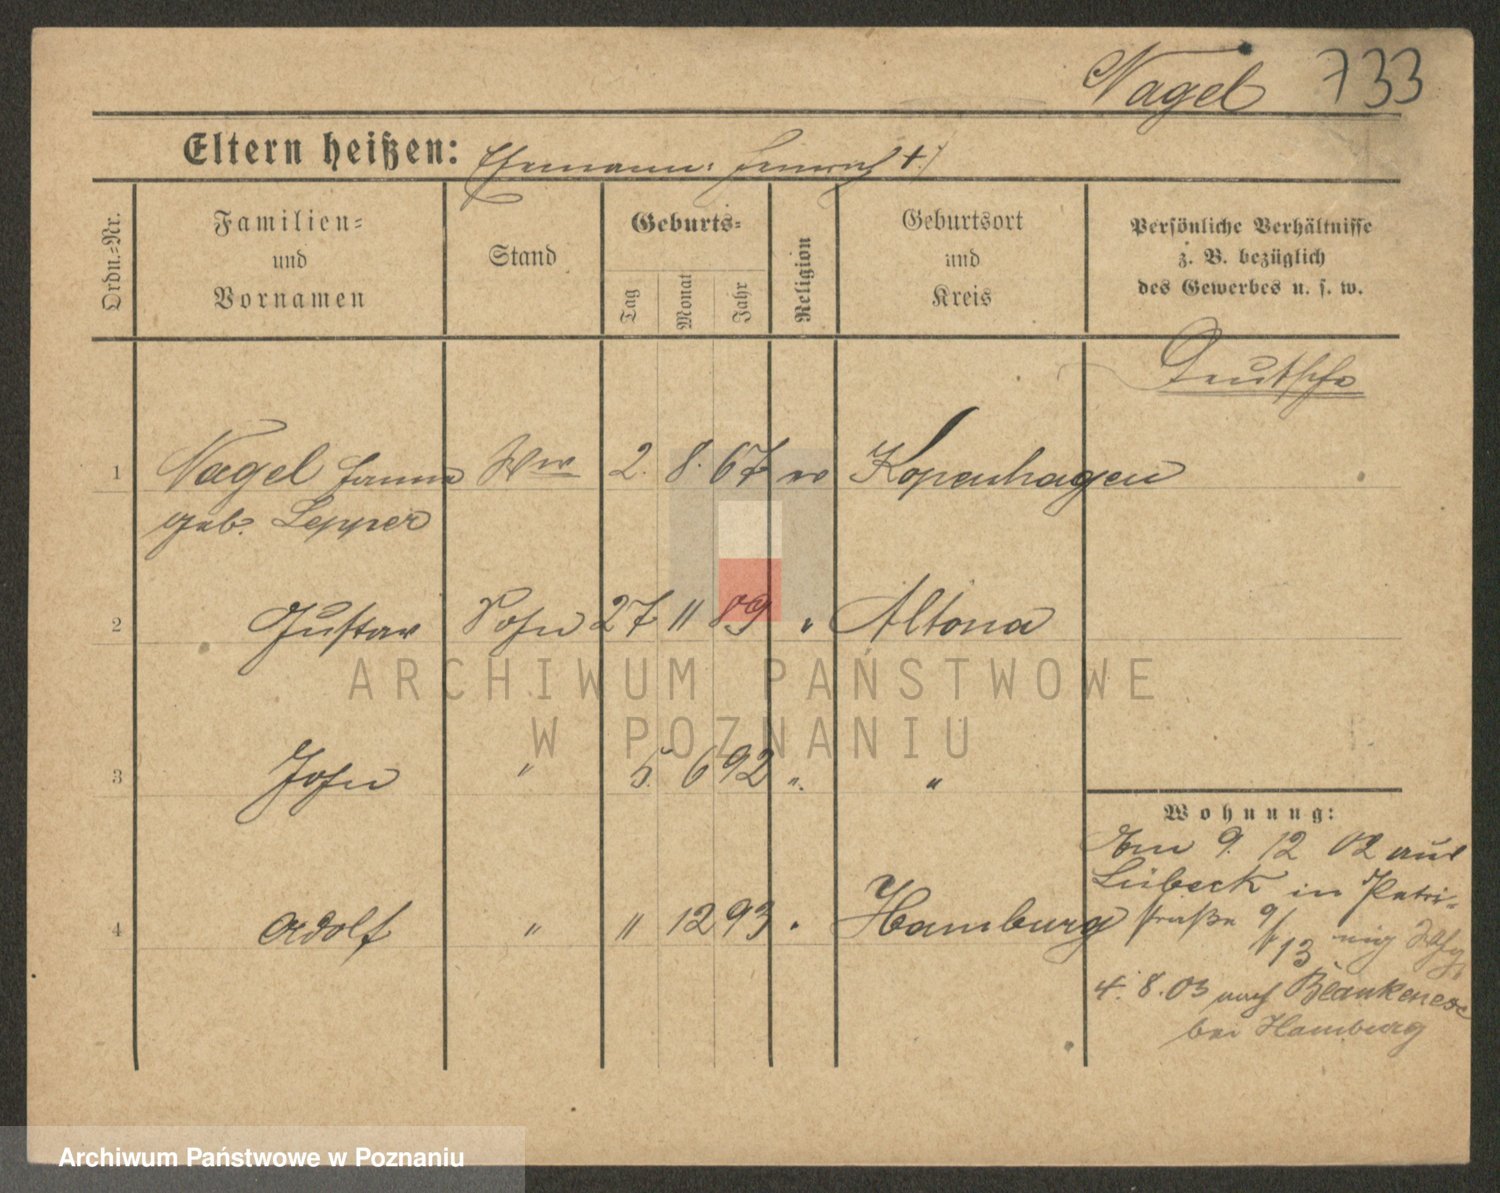 Nagel 733
Eltern heißen: Ehemann: Heinrich †.
Ordn.-Nr.
Familien-
und
Vornamen
Stand
Geburts-
Tag
Monat
Jahr
Religion
Geburtsort
und
Kreis
Persönliche Verhältnisse
z. B. bezüglich
des Gewerbes u. s. w.
Deutsche
1 Nagel Ww 2. 8. 67 ev Kopenhagen
geb. Lepper
2 Gustav Sohn 27 11 89 " Altona
3 John " 5. 6 92 " "
4 Adolf " " 12 93 " Hamburg
Wohnung:
Am 9. 12 02 aus
Lübeck in Patri-
straße 9/13
4. 8. 03 nach Blankenese
bei Hamburg
ARCHIWUM PAŃSTWOWE
W POZNANIU
Archiwum Państwowe w Poznaniu